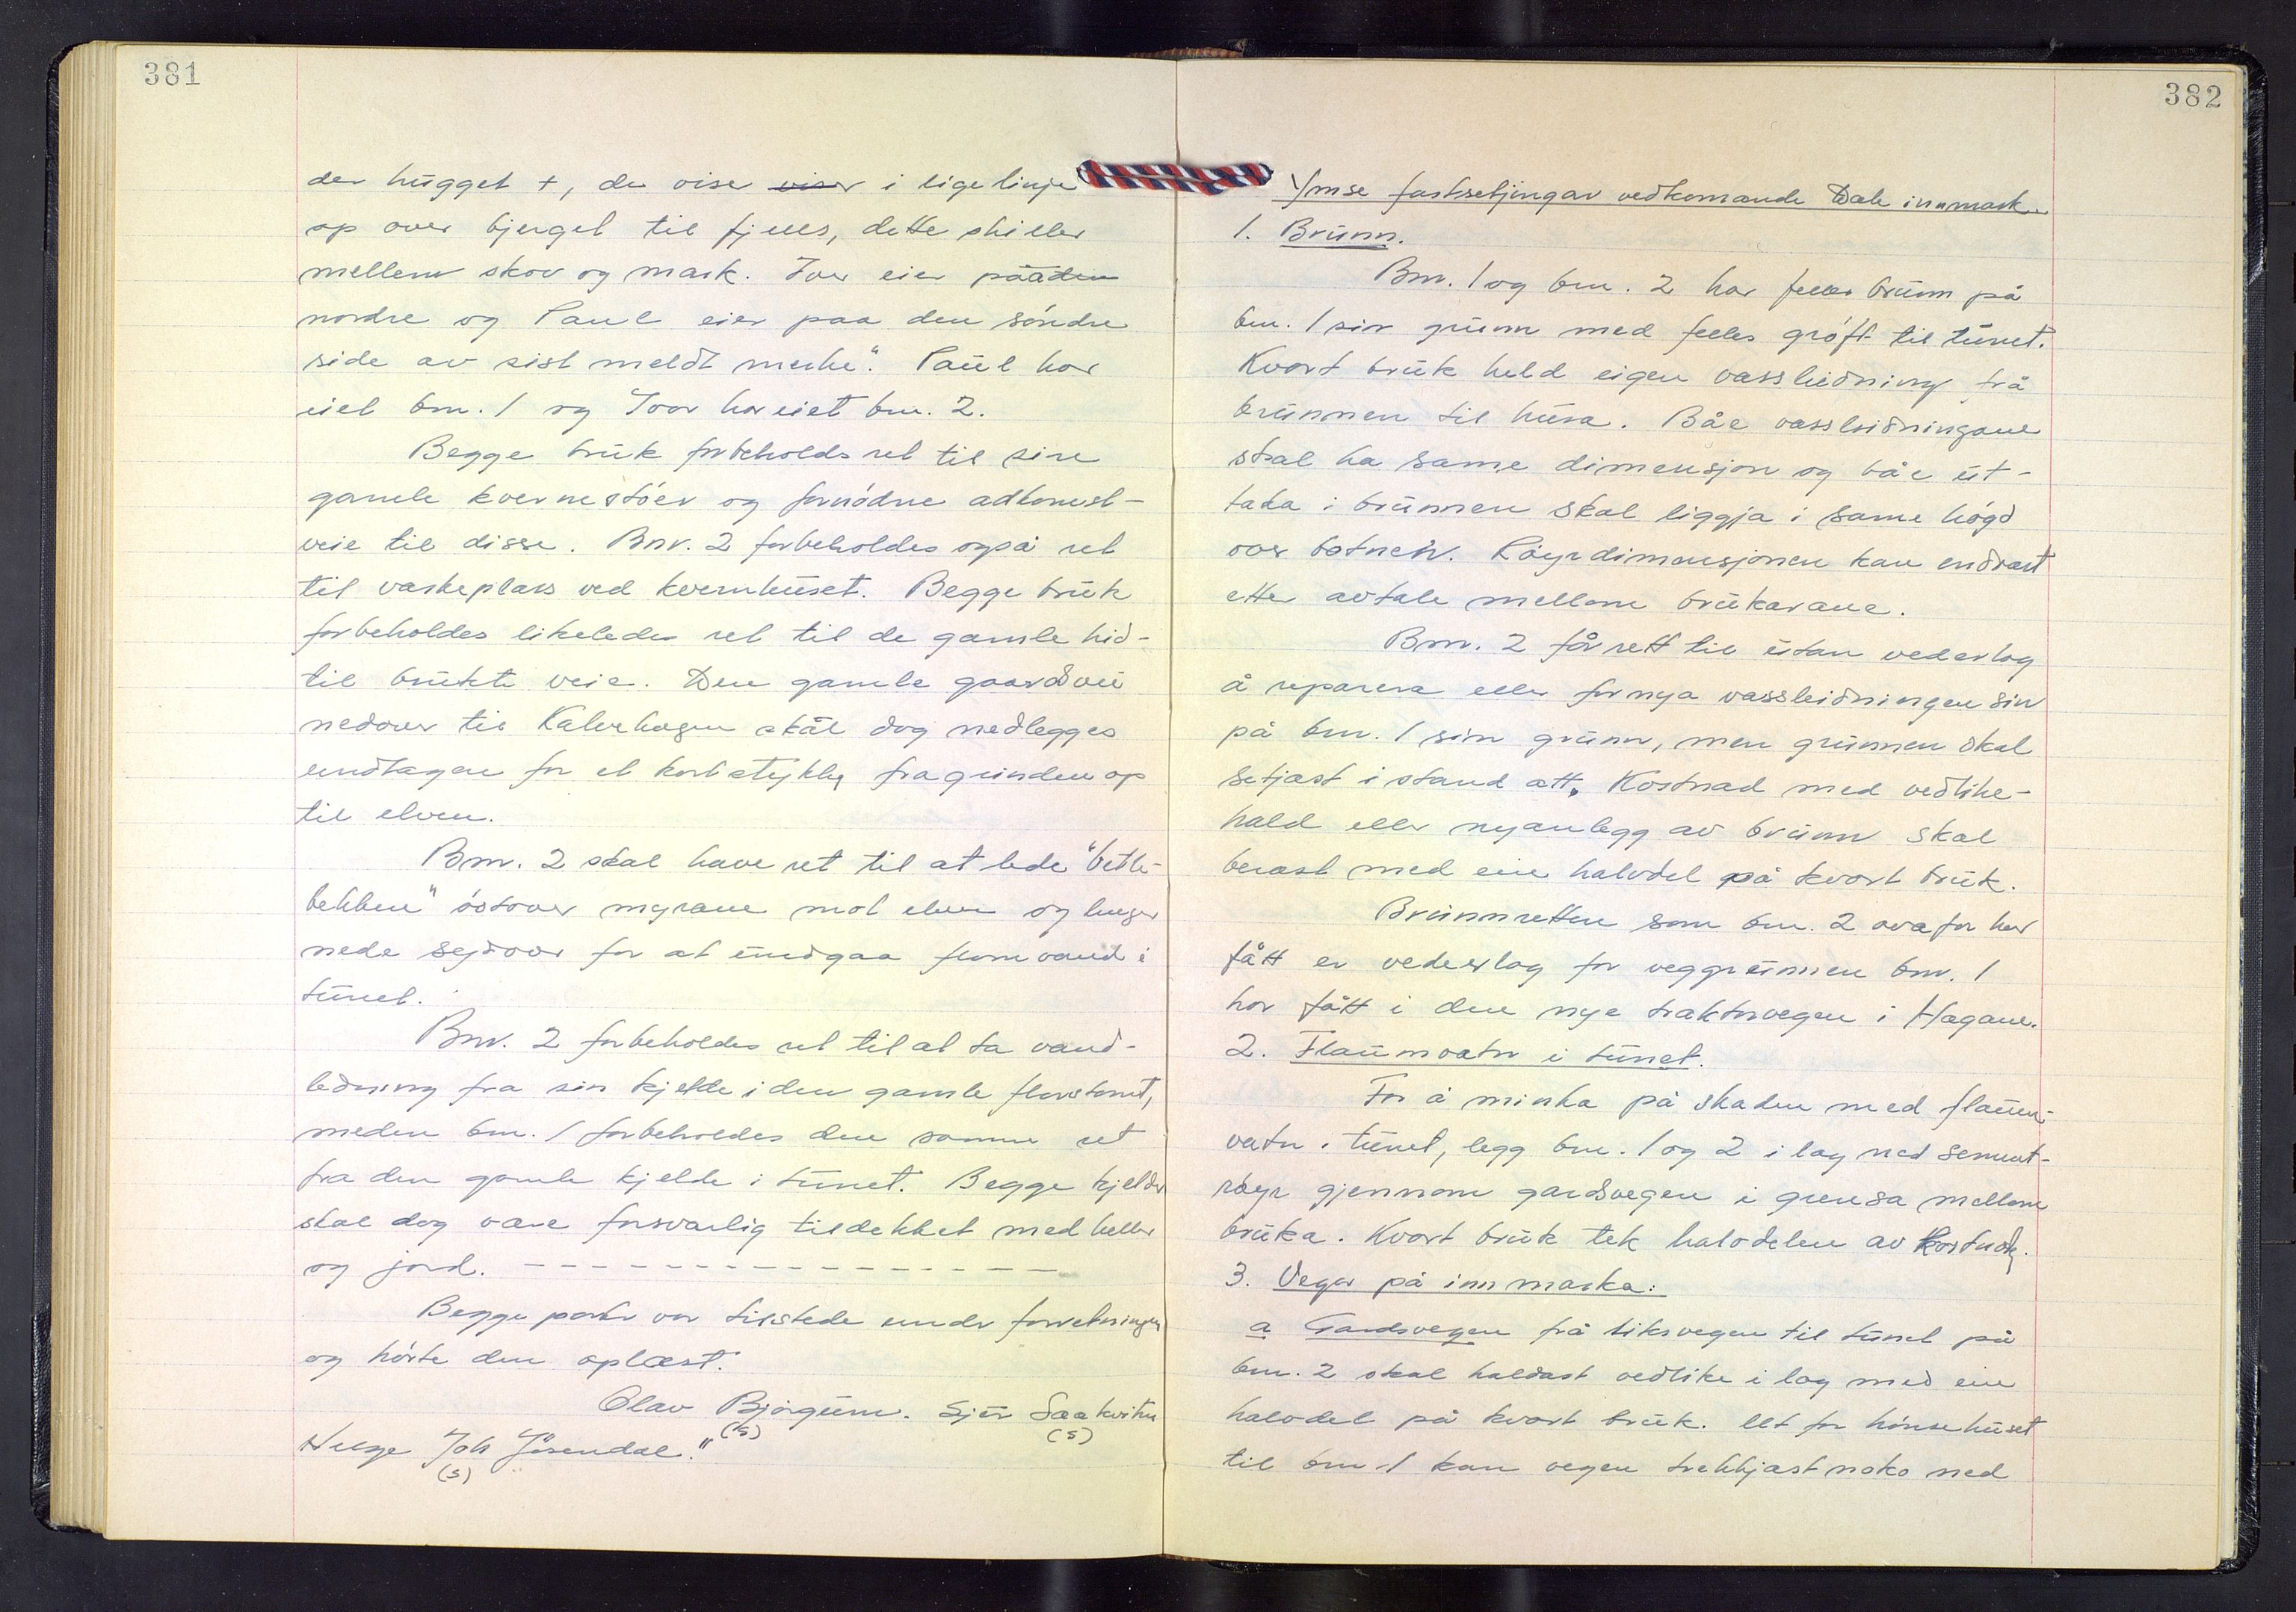 381
der hugget +, de vise viser i lige linje
op over bjerget til fjells, dette skiller
mellem skov og mark. Ivar eier på den
nordre og Paul eier paa den söndre
side av sist meldt merke". Paul har
eiet bnr. 1 og Ivar har eiet bnr. 2.
Begge bruk forbeholds ret til sine
gamle kvernestöer og fornödne adkomst-
veie til disse. Bnr. 2 forbeholdes også ret
til vaskeplass ved kvernhuset. Begge bruk
forbeholdes likeledes ret til de gamle hid-
til brukte veie. Den gamle gaardsvei
nedover til Kalvehagen skal dog nedlegges
undtagen for et kort stykke fra grinden op
til elven.
Bnr. 2 skal have ret til at lede "betle-
bekken" östover myrane mot elven og lenger
nede sydover for at undgaa flomvand i
tunet.
Bnr. 2 forbeholdes ret til at ta vand-
ledning fra sin kjelde i den gamle flortomt,
meden bnr. 1 forbeholdes den samme ret
fra den gamle kjelde i tunet. Begge kjelder
skal dog være forsvarlig tildekket med heller
og jord. - - - - - - - - - - - - - - - -
Begge parter var tilstede under forretningen
og hörte den oplæst.
Olav Bjørgum. Sjur Saakvitne
(s) (s)
Helge Joh Jösendal."
(s)
382
Ymse fastsetjingar vedkomande Dale innmark
1. Brunn.
Bnr. 1 og bnr. 2 har felles brunn på
bnr. 1 sin grunn med felles gröft til tunet.
Kvart bruk held eigen vassleidning frå
brunnen til husa. Båe vassleidningane
skal ha same dimensjon og båe ut-
taka i brunnen skal liggja i same högd
over botnen. Röyrdimensjonen kan endrast
etter avtale mellom brukarane.
Bnr. 2 får rett til utan vederlag
å reparera eller fornya vassleidningen sin
på bnr. 1 sin grunn, men grunnen skal
setjast i stand att. Kostnad med vedlike-
hald eller nyanlegg av brunn skal
berast med ein halvdel på kvart bruk.
Brunnretten som bnr. 2 ovafor har
fått er vederlag for veggrunnen bnr. 1
har fått i den nye traktorvegen i Hagane.
2. Flaumvatn i tunet.
For å minka på skaden med flaum-
vatn i tunet, legg bnr. 1 og 2 i lag ned sement-
röyr gjennom gardsvegen i grensa mellom
bruka. Kvart bruk tek halvdelen av kostnad.
3. Vegar på innmarka:
a Gardsvegen frå riksvegen til tunet på
bnr. 2 skal haldast vedlike i lag med ein
halvdel på kvart bruk. Ut for hönsehuset
til bnr 1 kan vegen trekkjast noko ned